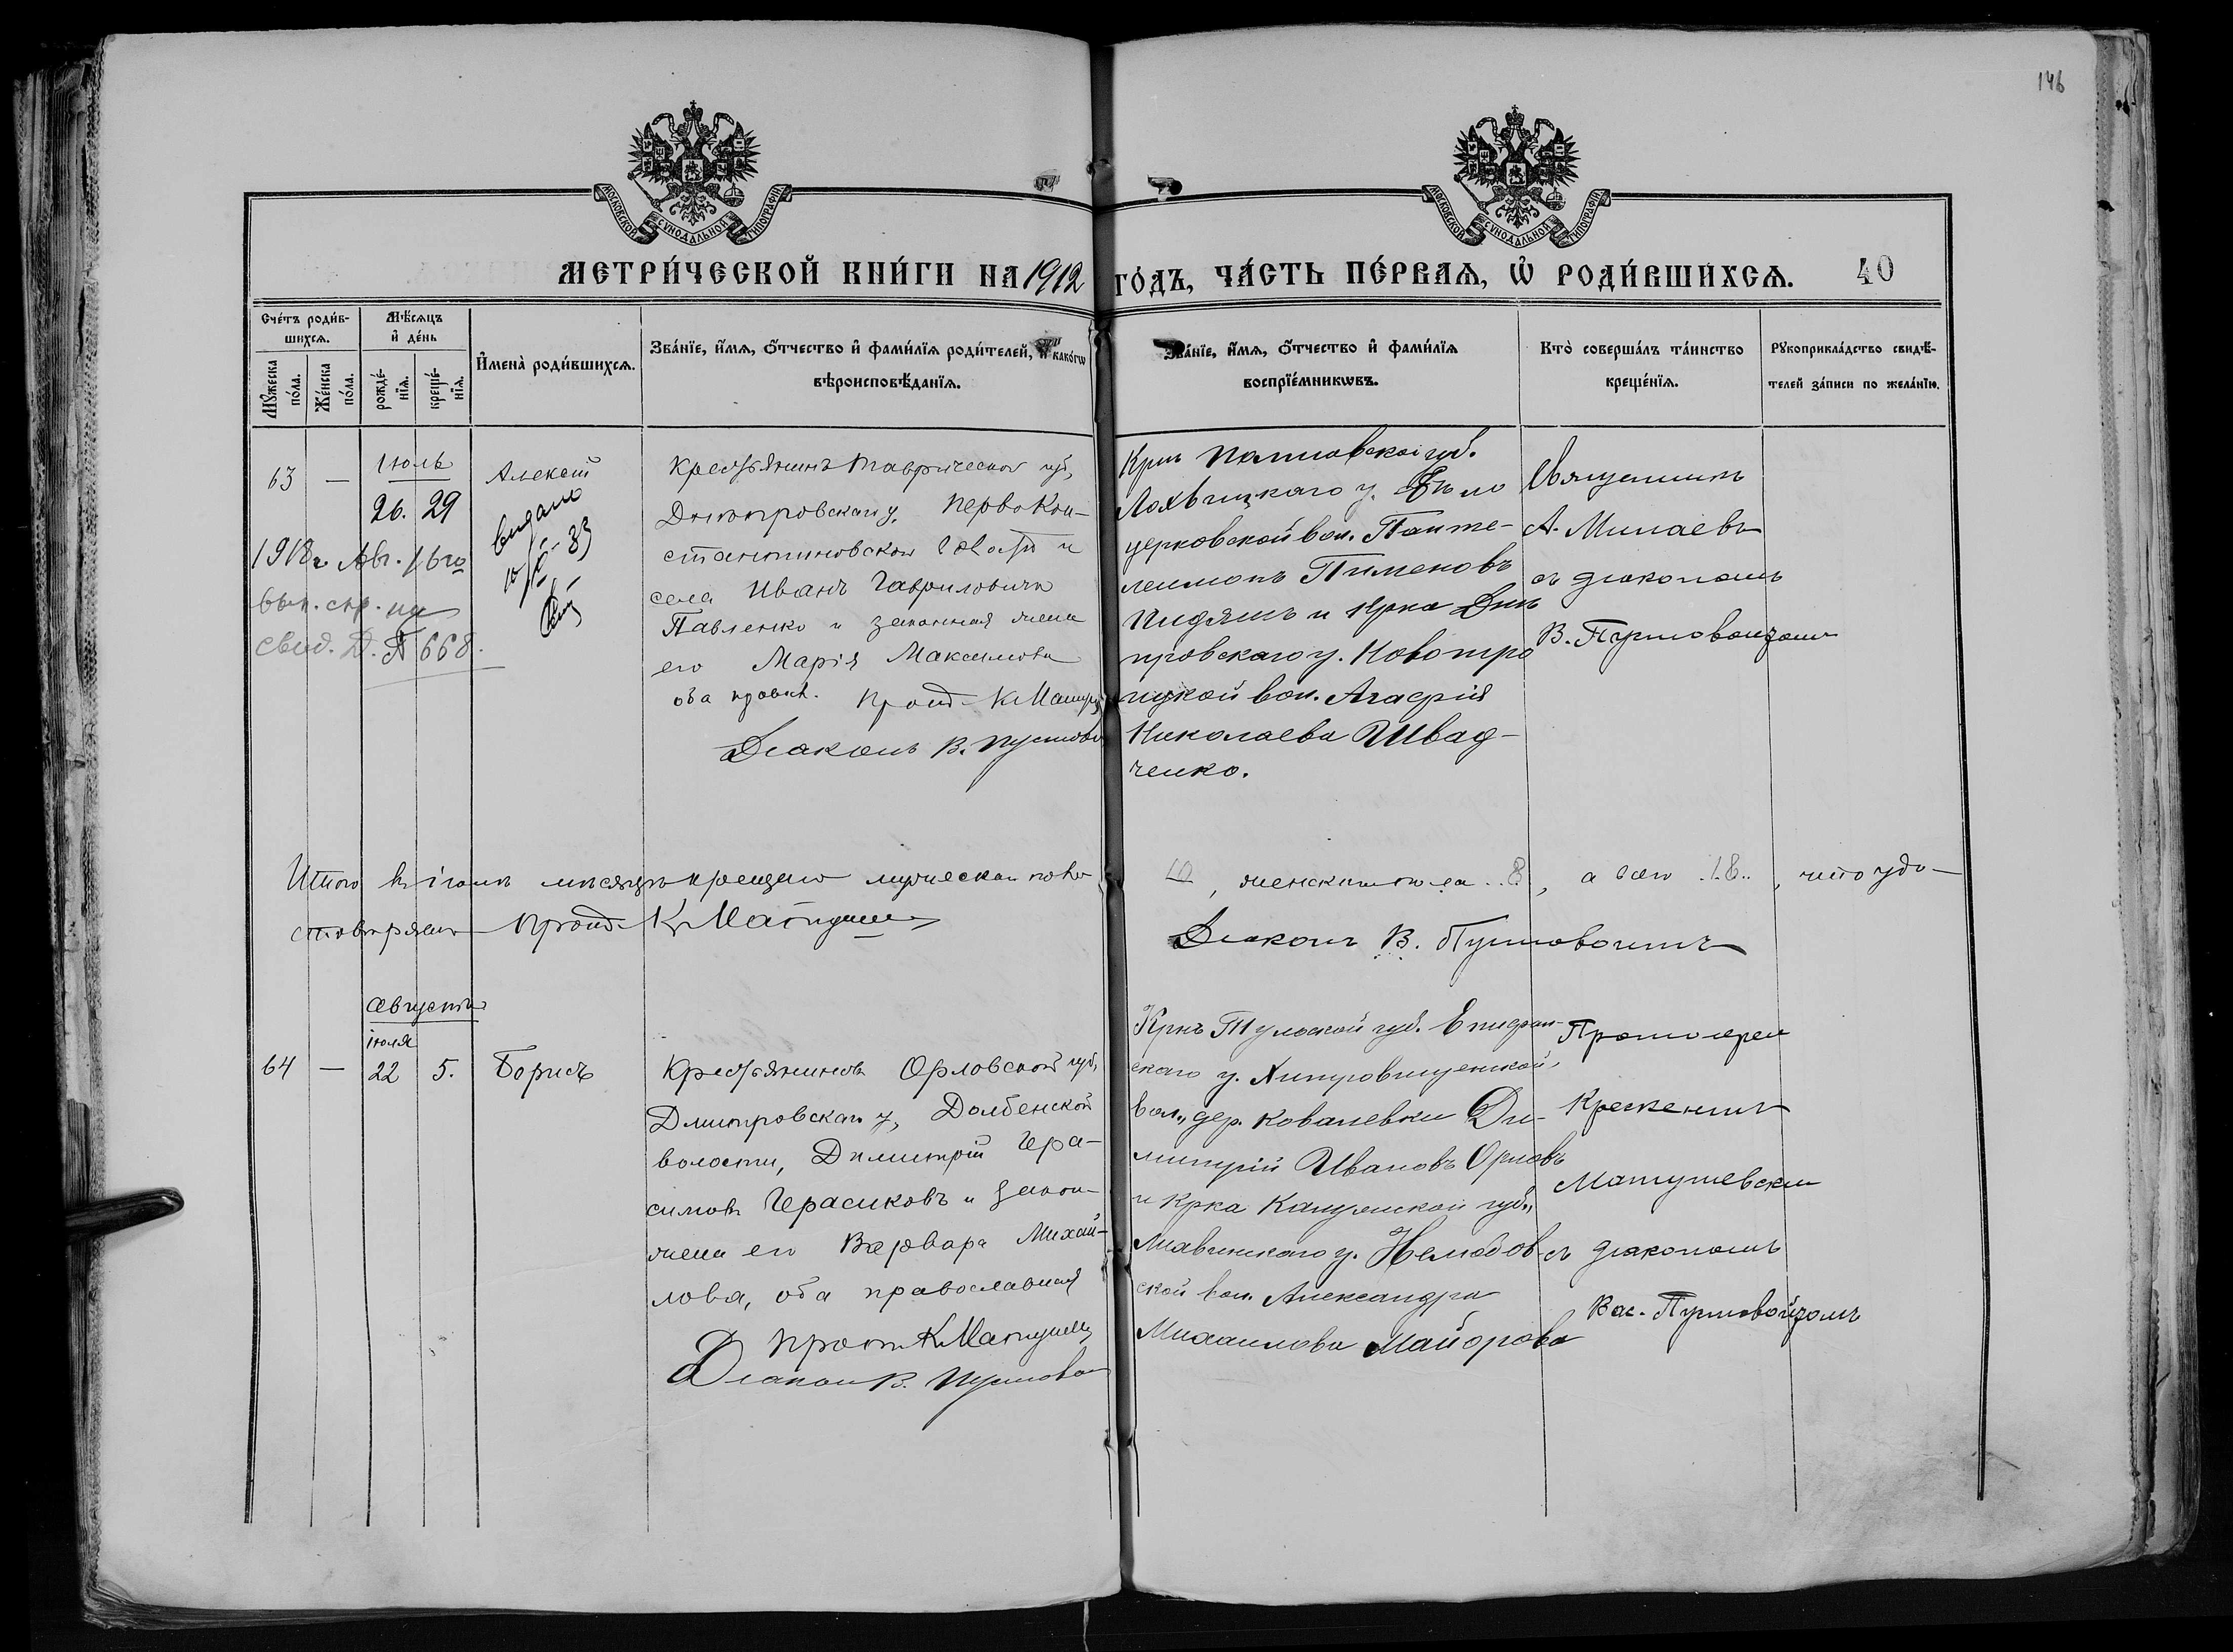 146
МОСКОВСКОЙ СѴНОДАЛЬНОЙ ТИПОГРАФІИ
МОСКОВСКОЙ СѴНОДАЛЬНОЙ ТИПОГРАФІИ
МЕТРИ́ЧЕСКОЙ КНИ́ГИ НА 1912 ГО́ДЪ, ЧА́СТЬ ПЕ́РВАЯ, Ѡ҆ РОДИ́ВШИХСЯ. 40
Сче́тъ роди́в-
шихся.
Мꙋ́жеска по́ла.
Же́нска по́ла.
Мѣ́сяцъ
и҆ де́нь
рожде́-
нїя.
креще́-
нїя.
И҆мена̀ роди́вшихся.
Зва́нїе, и҆́мя, ѻ҆́тчество и҆ фами́лїя роди́телей, и҆ како́гѡ
вѣроисповѣ́данїя.
Зва́нїе, и҆́мя, ѻ҆́тчество и҆ фами́лїя
воспрїе́мникѡвъ.
Кто̀ соверша́лъ та́инство
креще́нїя.
Рꙋкоприкла́дство свидѣ́-
телей за́писи по жела́нїю.
63 —
Июль
26. 29
Алексѣй
выдано
1918 г Авг. 16го
вып. спр.
свид. 668.
Крестьянинъ Таврической губ,
Днѣпровскаго у. Перво Кон-
стантиновской волости и
села Иванъ Гавриловичъ
Павленко и законная жена
его Марія Максимова
оба правосл. Прот К Матуш
Діаконъ В. Пустово
Крнъ Полтавской губ.
Лохвицкаго у. Бѣло
церковской вол. Панте-
леимонъ Пименовъ
Пидяшъ и Крка Днѣ
провскаго у. Новотро
ицкой вол. Агафія
Николаева Швад-
ченко.
Священникъ
А. Минаевъ
съ діакономъ
В. Пустовойтомъ
Итого въ іюлѣ мѣсяцѣ крещено мужеска пола 10, женскаго пола 8, а всего 18, что удо-
стовѣряемъ Прот К Матушев
Діаконъ В. Пустовойтъ
Августъ
іюля
64 — 22 5.
Борисъ
Крестьянинъ Орловской губ,
Дмитровскаго у, Долбенской
волости, Димитрій Гера-
симовъ Герасиковъ и закон-
жена его Варвара Михай-
лова, оба православныя
Прот К Матушев
Діаконъ В. Пустово
Крнъ Тульской губ. Епифан-
скаго у.
вол., дер. Ковалевки Ди-
митрій Ивановъ Орловъ
и Крка Калужской губ.,
скаго у.
ской вол. Александра
Михаилова Майорова
Протоіерей
Матушевскій
съ діакономъ
Вас. Пустовойтомъ